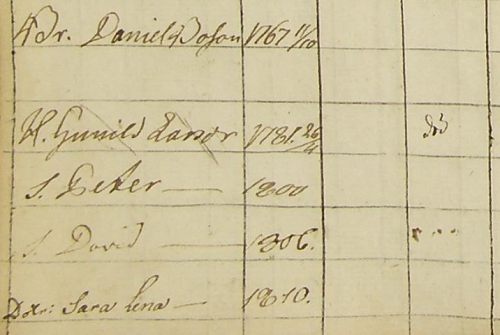 Br. Daniel 1767 11/10
H. Gunild Larsdr 1781. 26/11 död
S. Peter — 1800
S. David — 1806.
Dtr: Sara Lena — 1810.